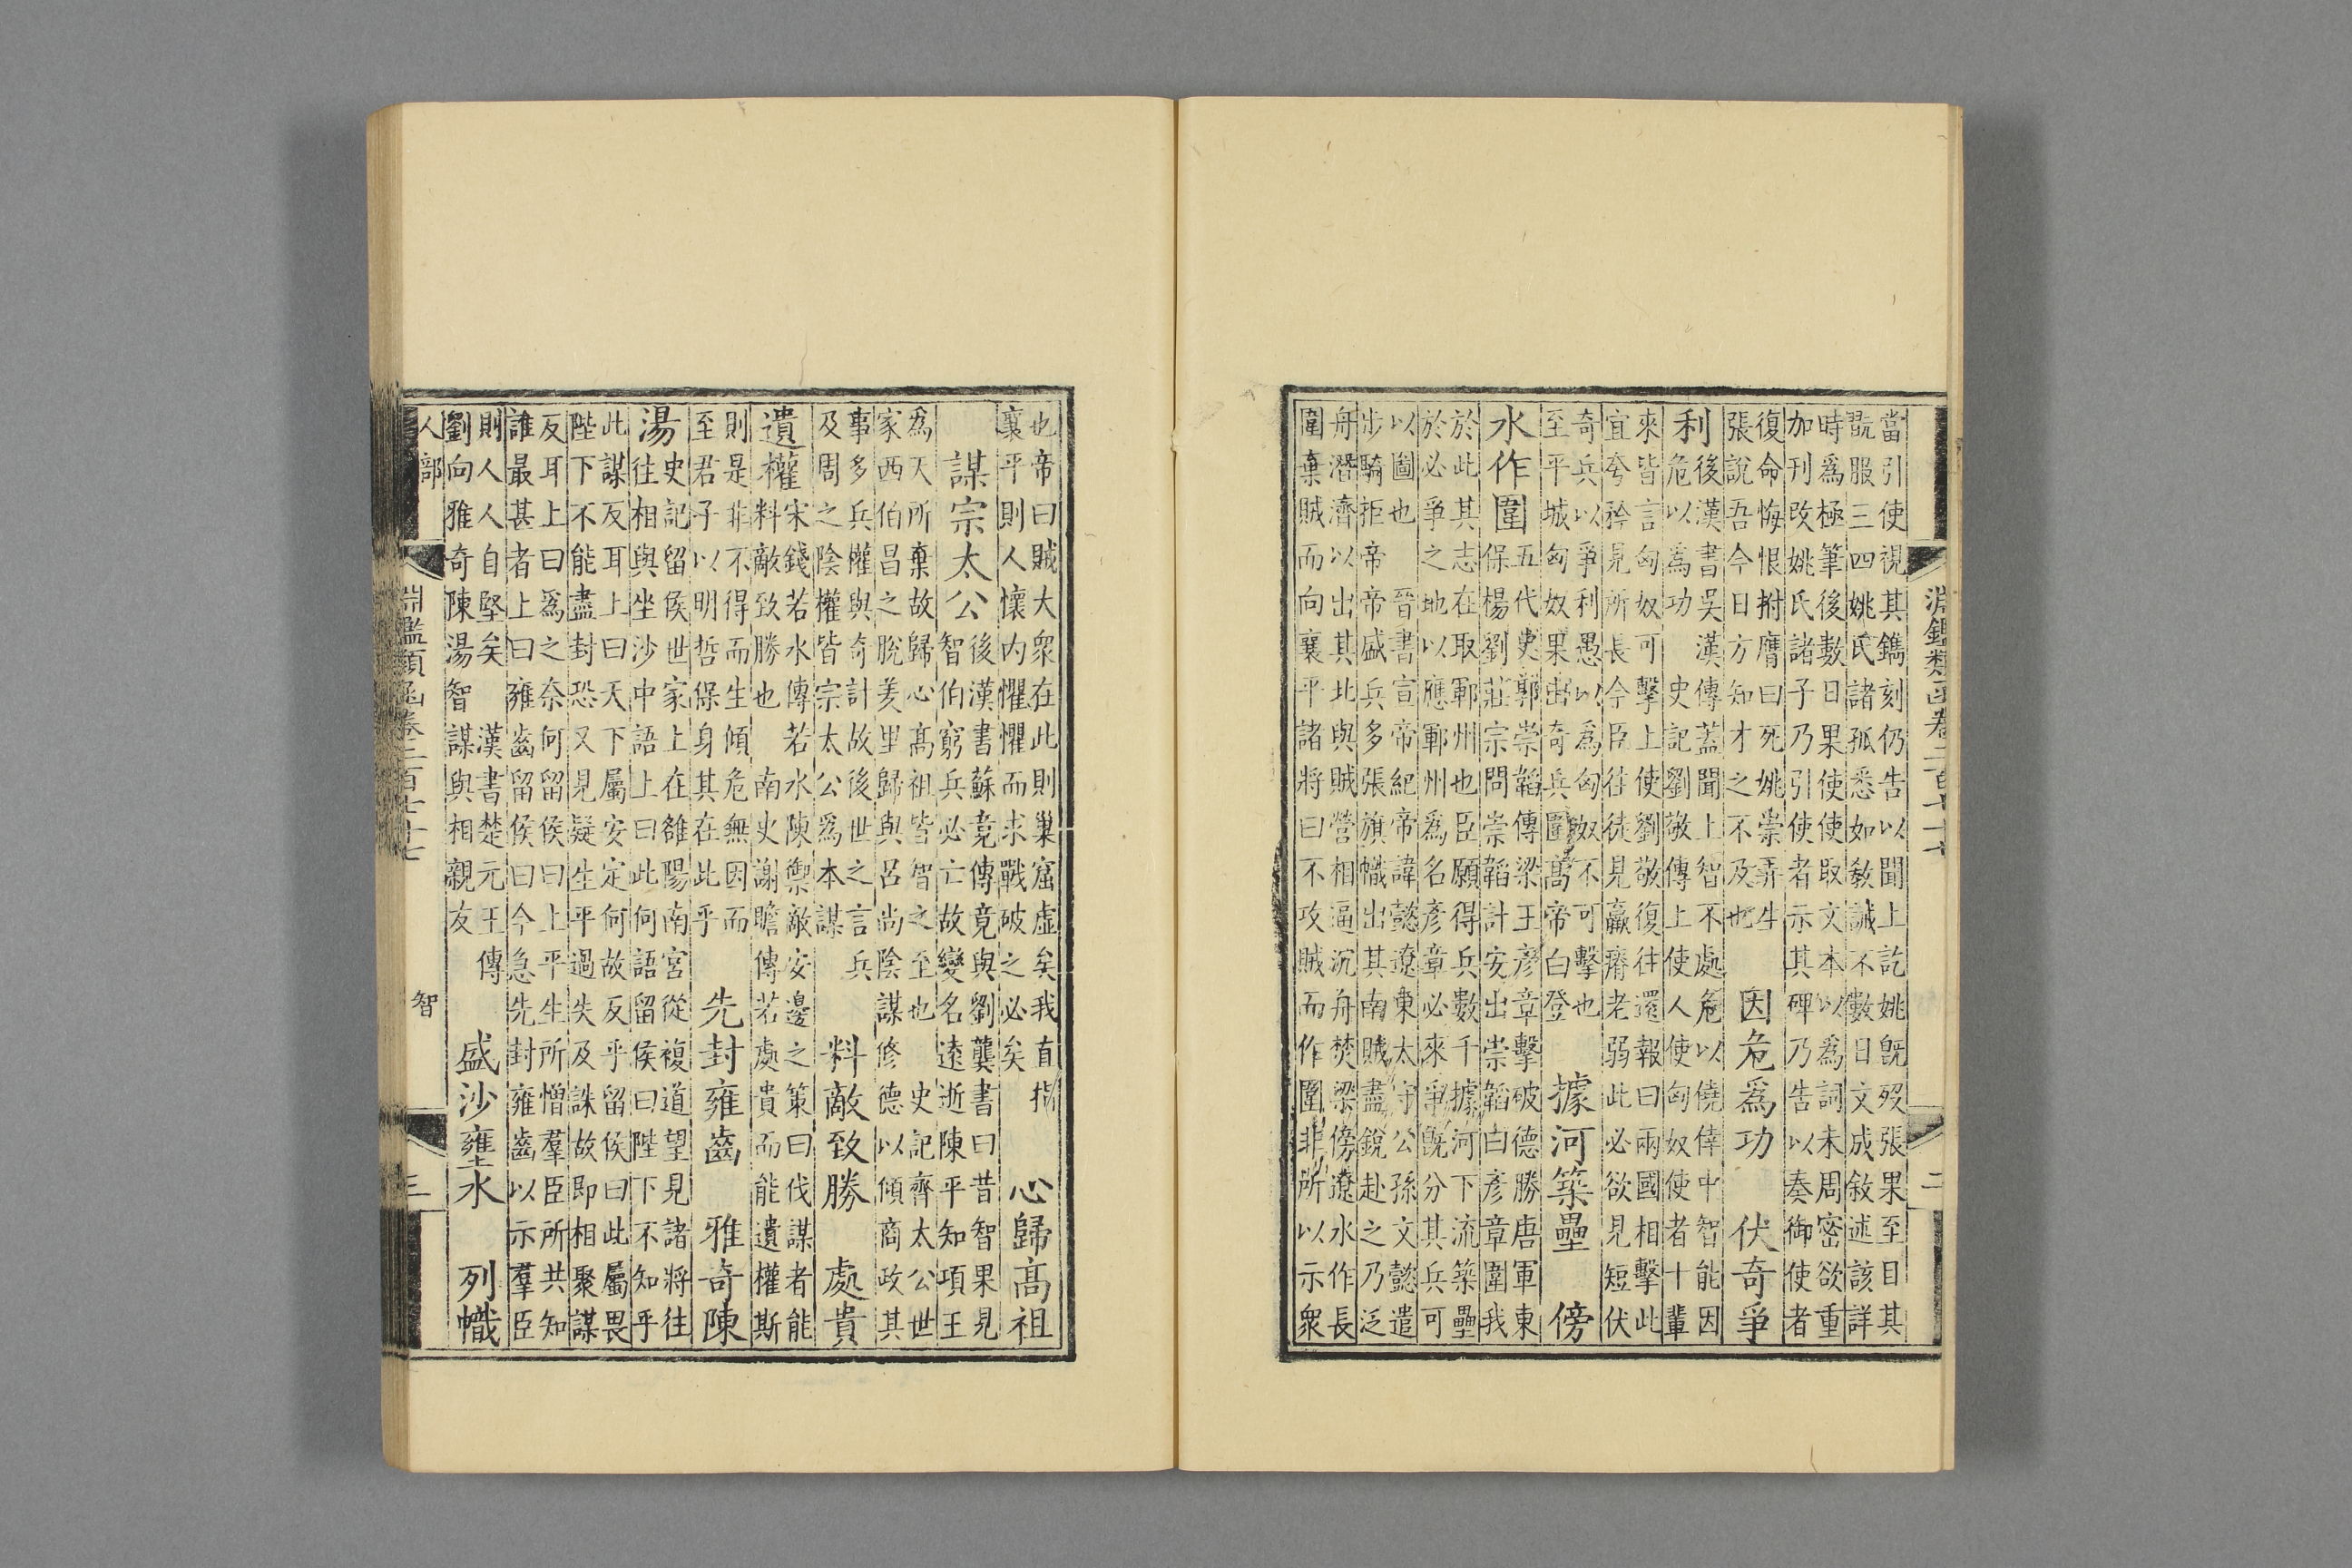 淵鑑類函卷二百七十七
二
當引使視其鐫刻仍告以聞上訖姚既歿張果至目其
翫服三四姚氏諸孤悉如教誡不數日文成敘述該詳
時爲極筆後數日果使使取文本以爲詞未周密欲重
加刊改姚氏諸子乃引使者示其碑乃告以奏御使者
復命悔恨拊膺曰死姚崇弄生
張說吾今日方知才之不及也
因危爲功 伏奇爭
利
後漢書吳漢傳蓋聞上智不處危以僥倖中智能因
危以爲功 史記劉敬傳上使人使匈奴使者十輩
來皆言匈奴可擊上使劉敬復往還報曰兩國相擊此
宜夸矜見所長今臣往徒見羸瘠老弱此必欲見短伏
奇兵以爭利愚以爲匈奴不可擊也
至平城匈奴果出奇兵圍高帝白登
據河築壘 傍
水作圍
五代史郭崇韜傳梁王彥章擊破德勝唐軍東
保楊劉莊宗問崇韜計安出崇韜曰彥章圍我
於此其志在取鄆州也臣願得兵數千據河下流築壘
於必爭之地以應鄆州爲名彥章必來爭既分其兵可
以圖也 晉書宣帝紀帝諱懿遼東太守公孫文懿遣
步騎拒帝帝盛兵多張旗幟出其南賊盡銳赴之乃泛
舟潛濟以出其北與賊營相逼沉舟焚梁傍遼水作長
圍棄賊而向襄平諸將曰不攻賊而作圍非所以示衆
也帝曰賊大衆在此則巢窟虛矣我直指
襄平則人懷内懼懼而求戰破之必矣
心歸高祖
謀宗太公
後漢書蘇竟傳竟與劉龔書曰昔智果見
智伯窮兵必亡故變名遠逝陳平知項王
爲天所棄故歸心高祖皆智之至也 史記齊太公世
家西伯昌之脫羑里歸與呂尚陰謀修德以傾商政其
事多兵權與奇計故後世之言兵
及周之陰權皆宗太公爲本謀
料敵致勝 處貴
遺權
宋錢若水傳若水陳禦敵安邊之策曰伐謀者能
料敵致勝也 南史謝瞻傳若處貴而能遺權斯
則是非不得而生傾危無因而
至君子以明哲保身其在此乎
先封雍齒 雅奇陳
湯
史記留侯世家上在雒陽南宮從複道望見諸將往
往相與坐沙中語上曰此何語留侯曰陛下不知乎
此謀反耳上曰天下屬安定何故反乎留侯曰此屬畏
陛下不能盡封恐又見疑生平過失及誅故即相聚謀
反耳上曰爲之奈何留侯曰上平生所憎羣臣所共知
誰最甚者上曰雍齒留侯曰今急先封雍齒以示羣臣
則人人自堅矣 漢書楚元王傳
劉向雅奇陳湯智謀與相親友
盛沙壅水 列幟
人部
淵鑑類函卷二百七十七
智
三